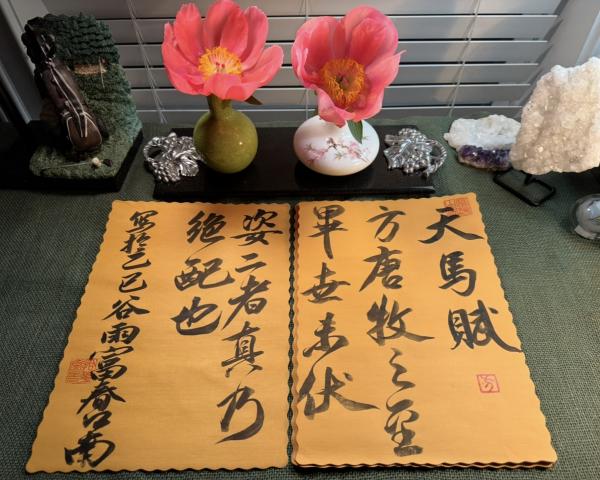 天馬賦
方唐牧之至
畢世未伏
姿二者真乃
絶配也
寫於乙巳谷雨富春江南